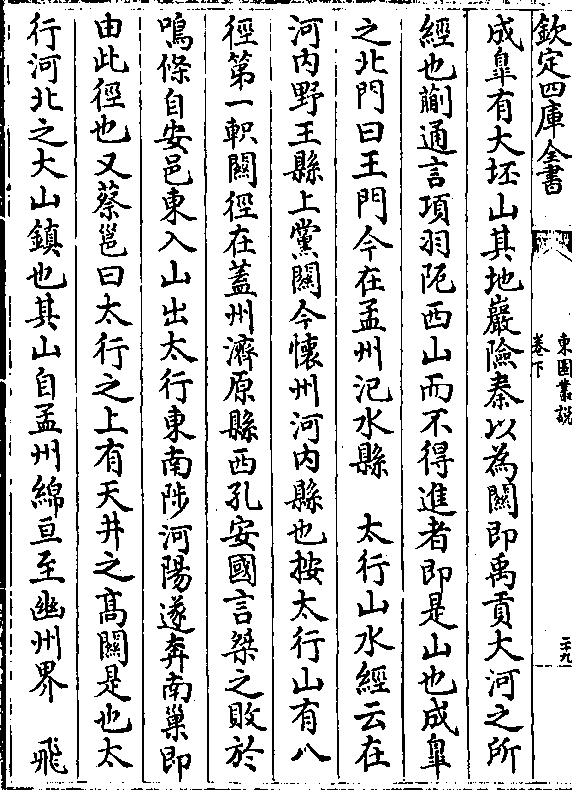 欽定四庫全書
東園叢説
卷下
二十九
成臯有大坯山其地巖險秦以為關即禹貢大河之所
經也蒯通言項羽阨西山而不得進者即是山也成臯
之北門曰王門今在孟州汜水縣　太行山水經云在
河内野王縣上黨關今懷州河内縣也按太行山有八
徑第一軹關徑在蓋州濟原縣西孔安國言桀之敗於
鳴條自安邑東入山出太行東南陟河陽遂奔南巢即
由此徑也又蔡邕曰太行之上有天井之髙關是也太
行河北之大山鎮也其山自孟州綿亘至幽州界　飛